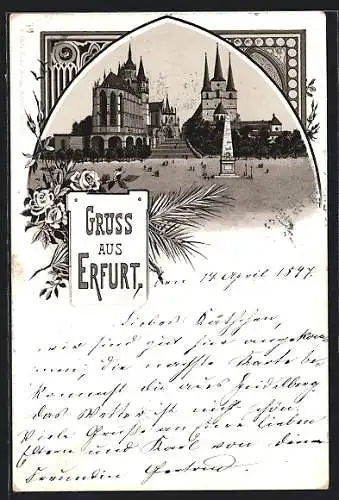 GRUSS
AUS
ERFURT.
den 14. April 1897.
Liebes Käthchen,
wir sind gut hier angekom-
men; die nächste Karte be-
kommst du aus Heidelberg
das Wetter ist noch schön.
Viele Grüße an deine lieben
Eltern und Karl von deiner
Freundin Gertrud.